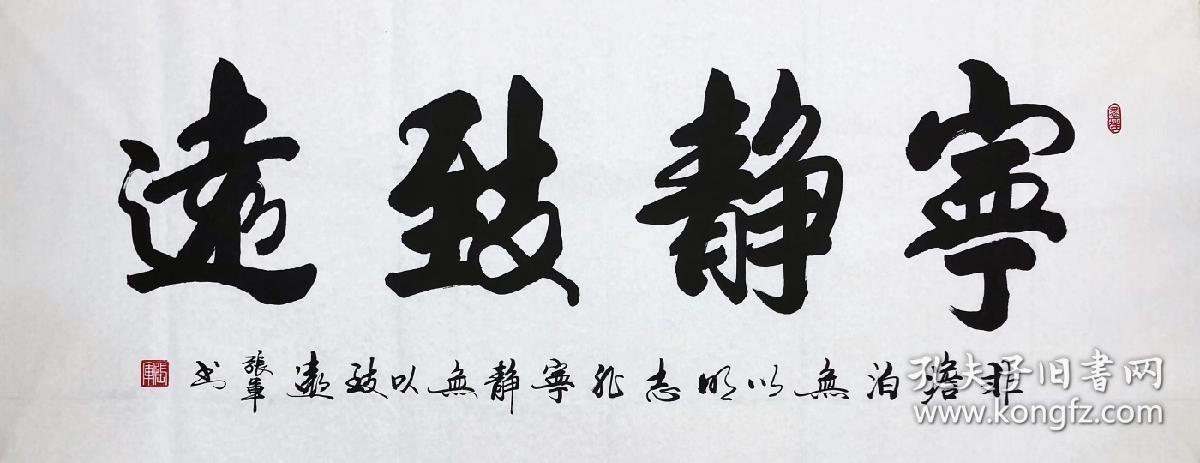 寧靜致遠
非澹泊無以明志非寧靜無以致遠 張軍書
張軍
孔夫子旧书网
www.kongfz.com